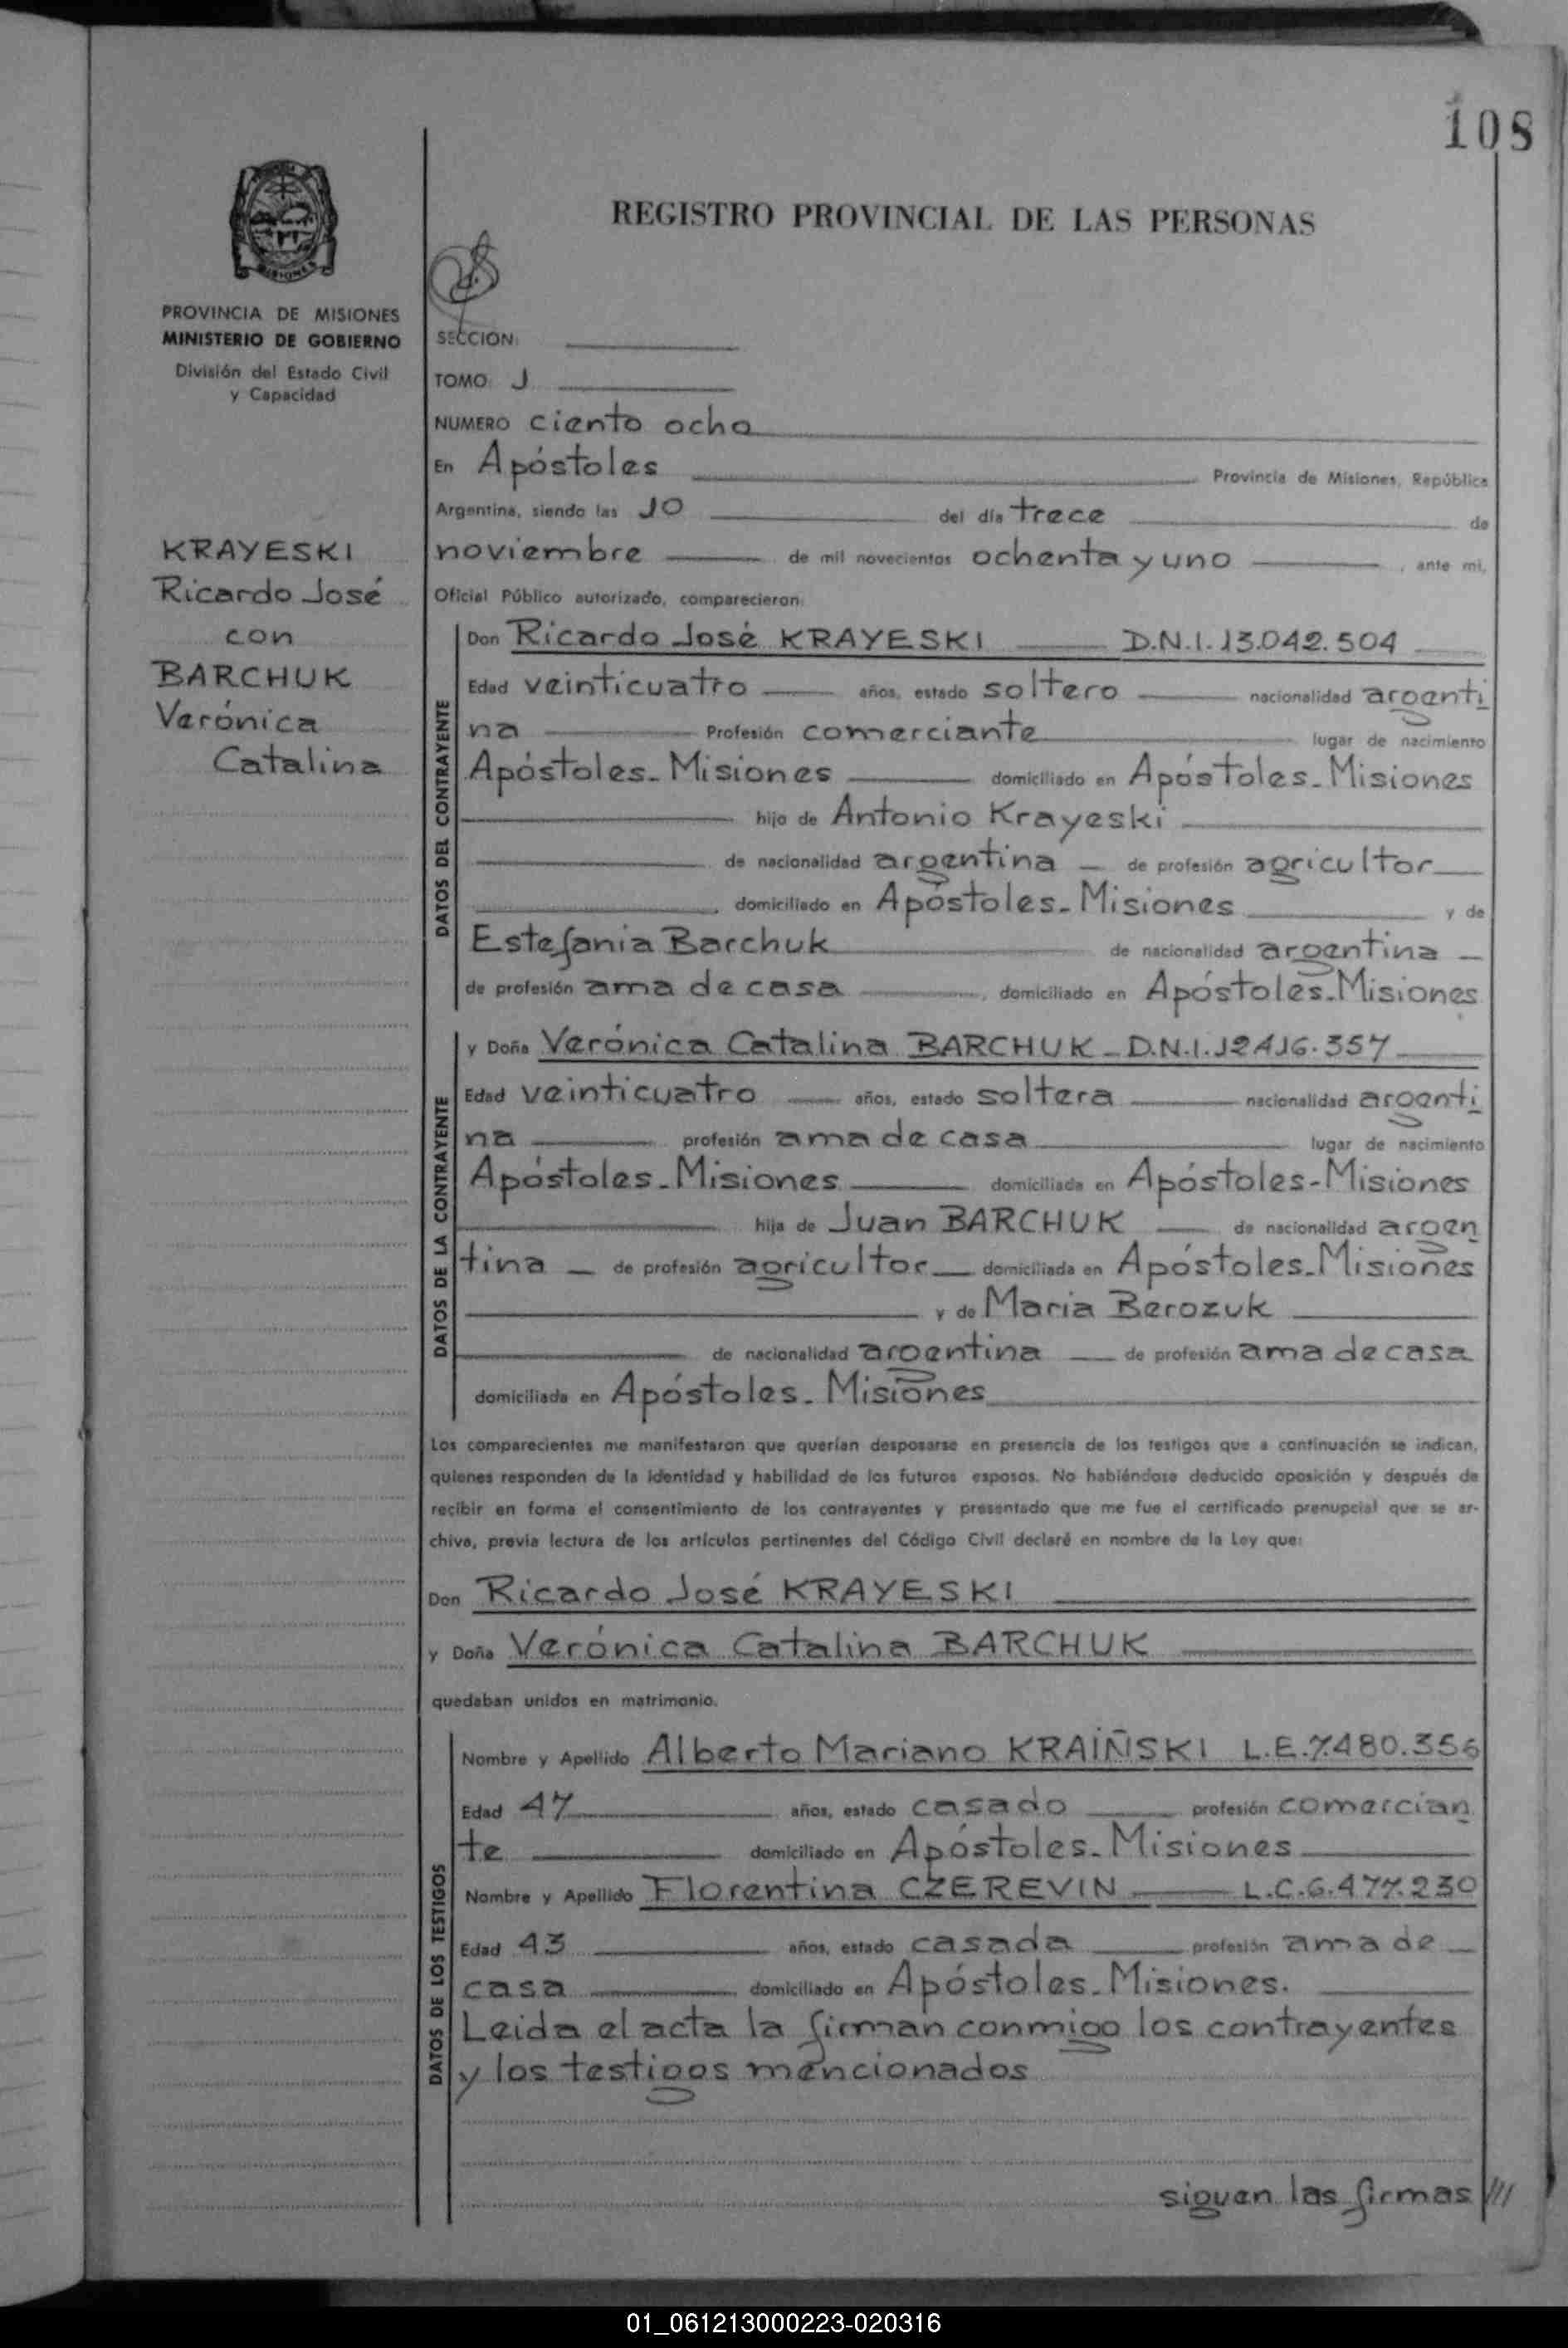 108
REGISTRO PROVINCIAL DE LAS PERSONAS
MISIONES
PROVINCIA DE MISIONES
MINISTERIO DE GOBIERNO
División del Estado Civil
y Capacidad
KRAYESKI
Ricardo José
con
BARCHUK
Verónica
Catalina
SECCION:
TOMO: 1
NUMERO ciento ocho
En Apóstoles Provincia de Misiones, República
Argentina, siendo las 10 del día trece de
noviembre de mil novecientos ochenta y uno, ante mi,
Oficial Público autorizado, comparecieron:
DATOS DEL CONTRAYENTE
Don Ricardo José KRAYESKI D.N.I. 13.042.504
Edad veinticuatro años, estado soltero nacionalidad argenti
na Profesión comerciante lugar de nacimiento
Apóstoles-Misiones domiciliado en Apóstoles-Misiones
hijo de Antonio Krayeski
de nacionalidad argentina - de profesión agricultor
domiciliado en Apóstoles-Misiones y de
Estefania Barchuk de nacionalidad argentina -
de profesión ama de casa, domiciliado en Apóstoles-Misiones
DATOS DE LA CONTRAYENTE
y Doña Verónica Catalina BARCHUK - D.N.I. 12.416.357
Edad veinticuatro años, estado soltera nacionalidad argenti
na profesión ama de casa lugar de nacimiento
Apóstoles-Misiones domiciliada en Apóstoles-Misiones
hija de Juan BARCHUK de nacionalidad argen
tina - de profesión agricultor domiciliada en Apóstoles-Misiones
y de Maria Berozuk
de nacionalidad argentina de profesión ama de casa
domiciliada en Apóstoles-Misiones
Los comparecientes me manifestaron que querían desposarse en presencia de los testigos que a continuación se indican,
quienes responden de la identidad y habilidad de los futuros esposos. No habiéndose deducido oposición y después de
recibir en forma el consentimiento de los contrayentes y presentado que me fue el certificado prenupcial que se ar-
chiva, previa lectura de los artículos pertinentes del Código Civil declaré en nombre de la Ley que:
Don Ricardo José KRAYESKI
y Doña Verónica Catalina BARCHUK
quedaban unidos en matrimonio.
DATOS DE LOS TESTIGOS
Nombre y Apellido Alberto Mariano KRAIÑSKI L.E. 7.480.356
Edad 47 años, estado casado profesión comercian
te domiciliado en Apóstoles-Misiones
Nombre y Apellido Florentina CZEREVIN L.C. 6.477.230
Edad 43 años, estado casada profesión ama de
casa domiciliado en Apóstoles-Misiones.
Leida el acta la firman conmigo los contrayentes
y los testigos mencionados
siguen las firmas ///
01_061213000223-020316